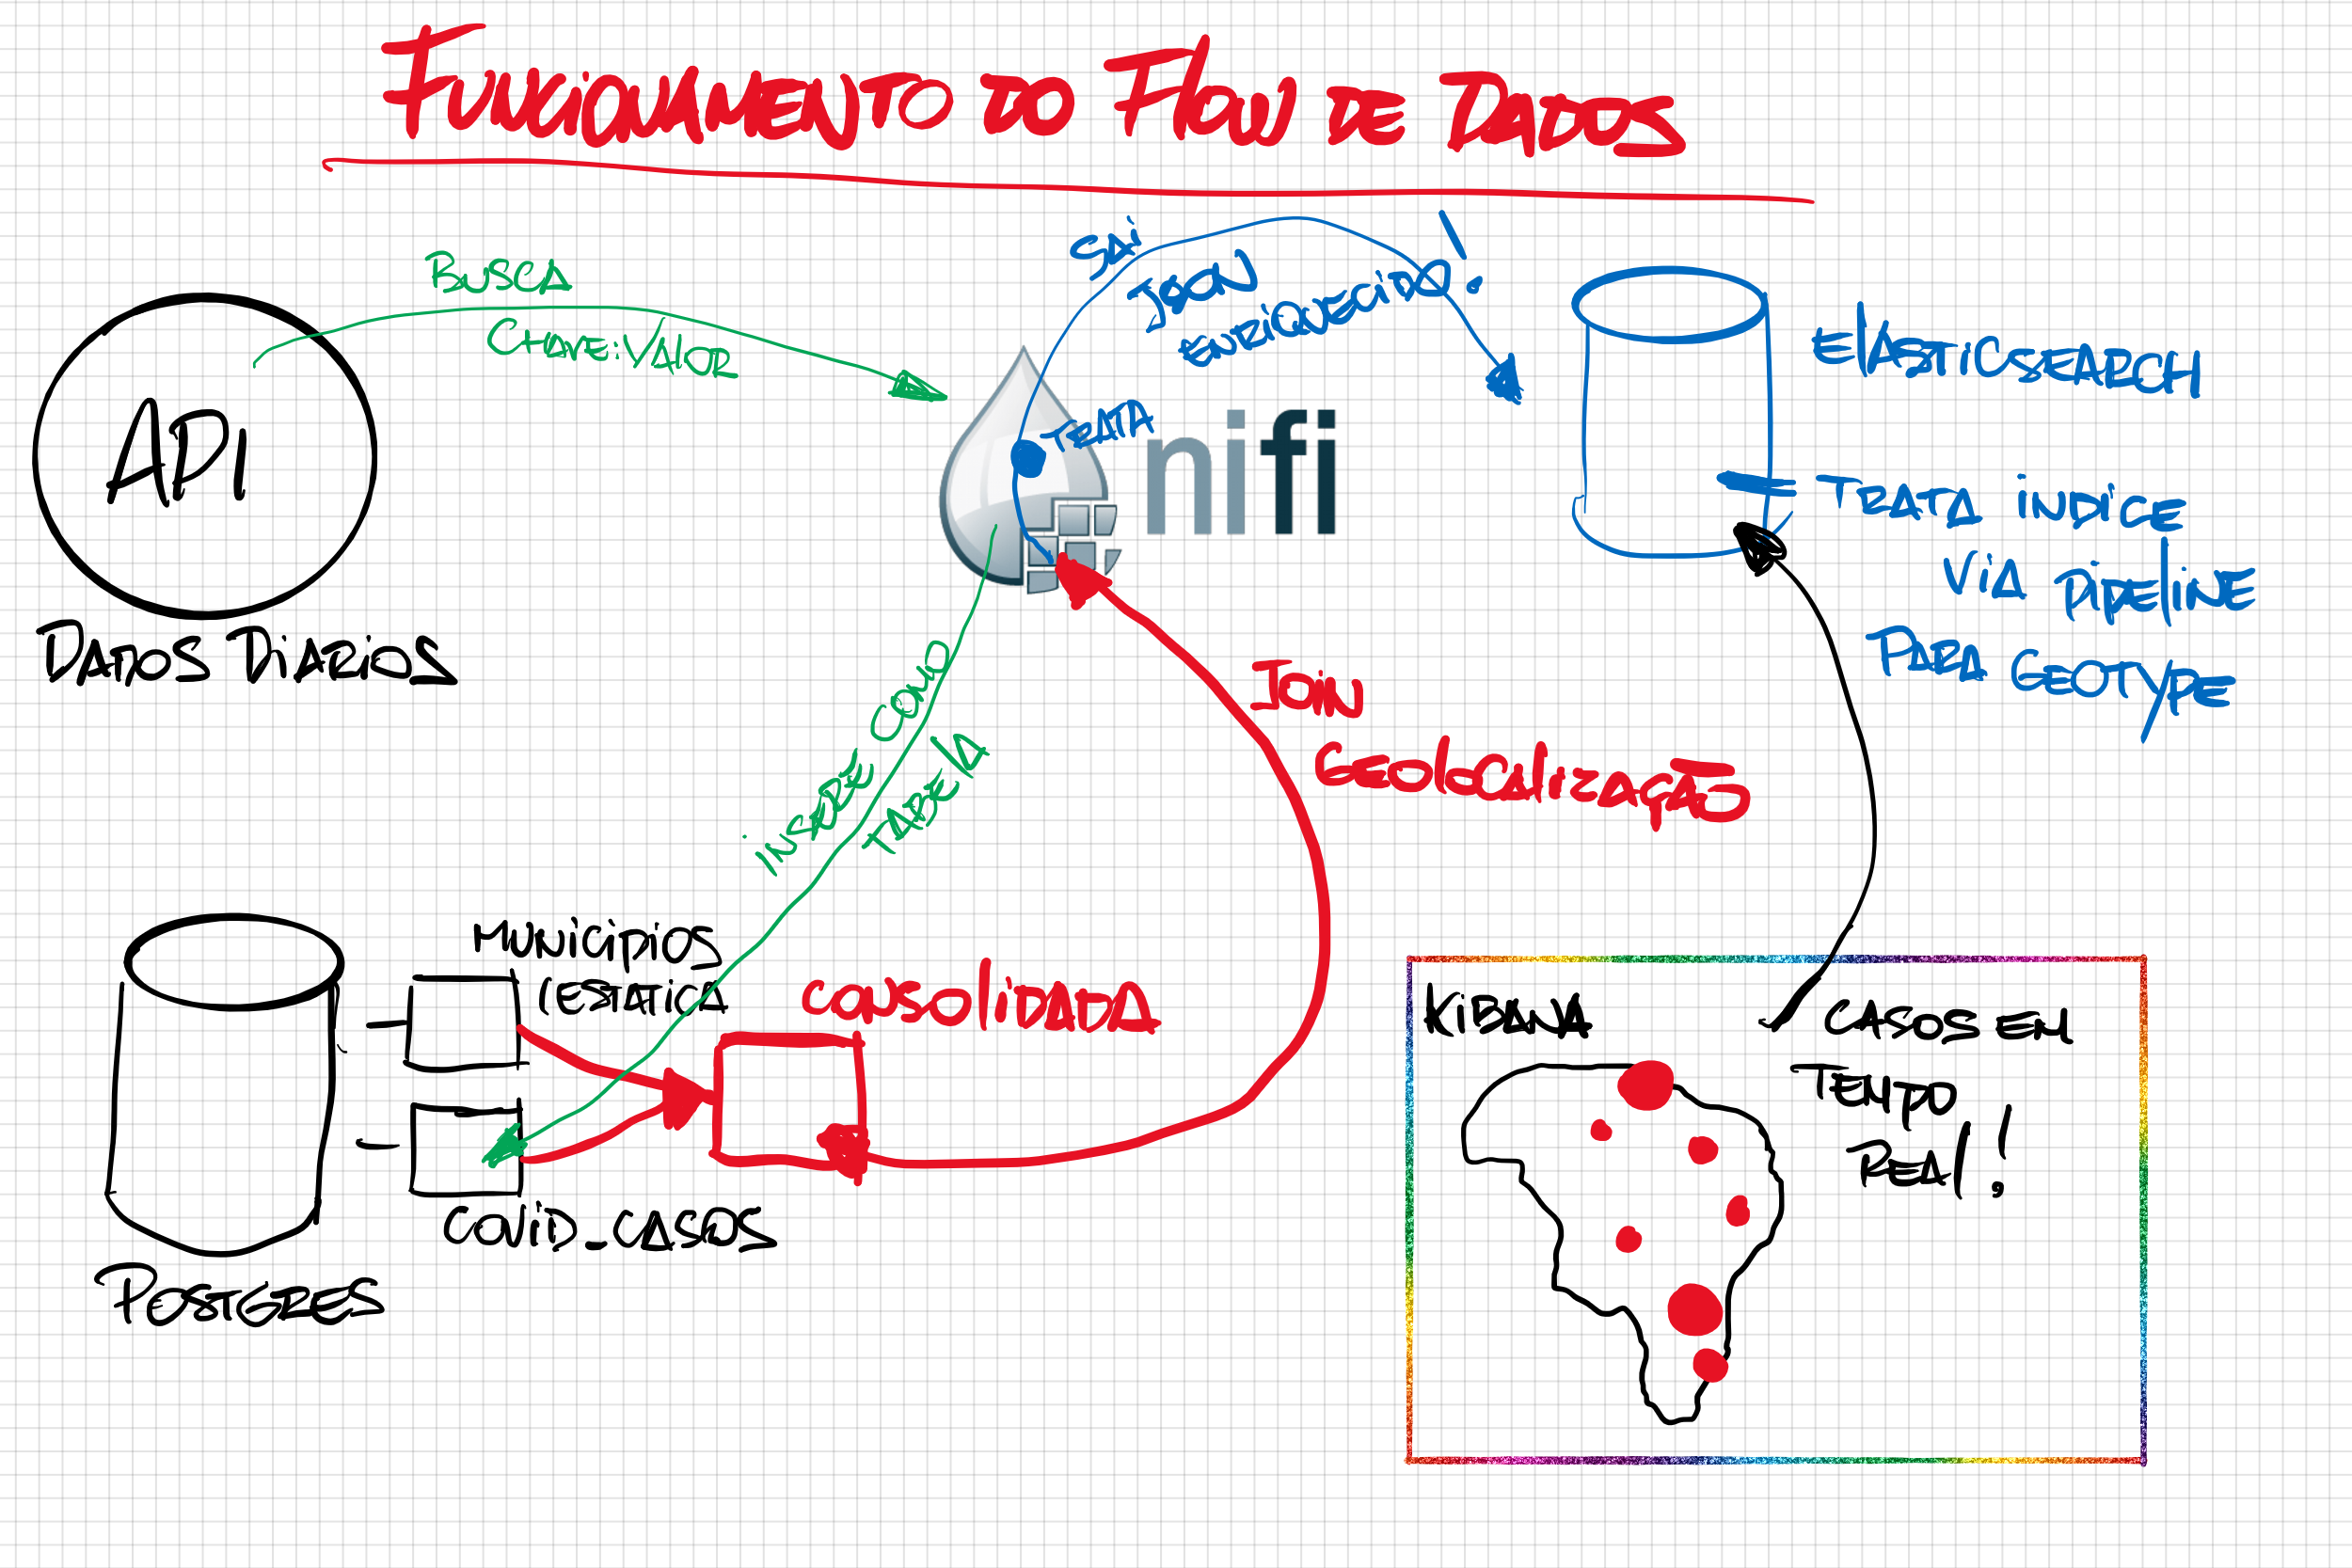 FUNCIONAMENTO DO FLOW DE DADOS
BUSCA
CHAVE:VALOR
API
DADOS DIARIOS
SAI
JSON
ENRIQUECIDO!
TRATA
nifi
ELASTICSEARCH
TRATA INDICE
VIA PIPELINE
PARA GEOTYPE
INSERE COMO
TABELA
JOIN
GEOLOCALIZAÇÃO
MUNICIPIOS
(ESTATICA
CONSOLIDADA
COVID_CASOS
POSTGRES
KIBANA
CASOS EM
TEMPO
REAL!